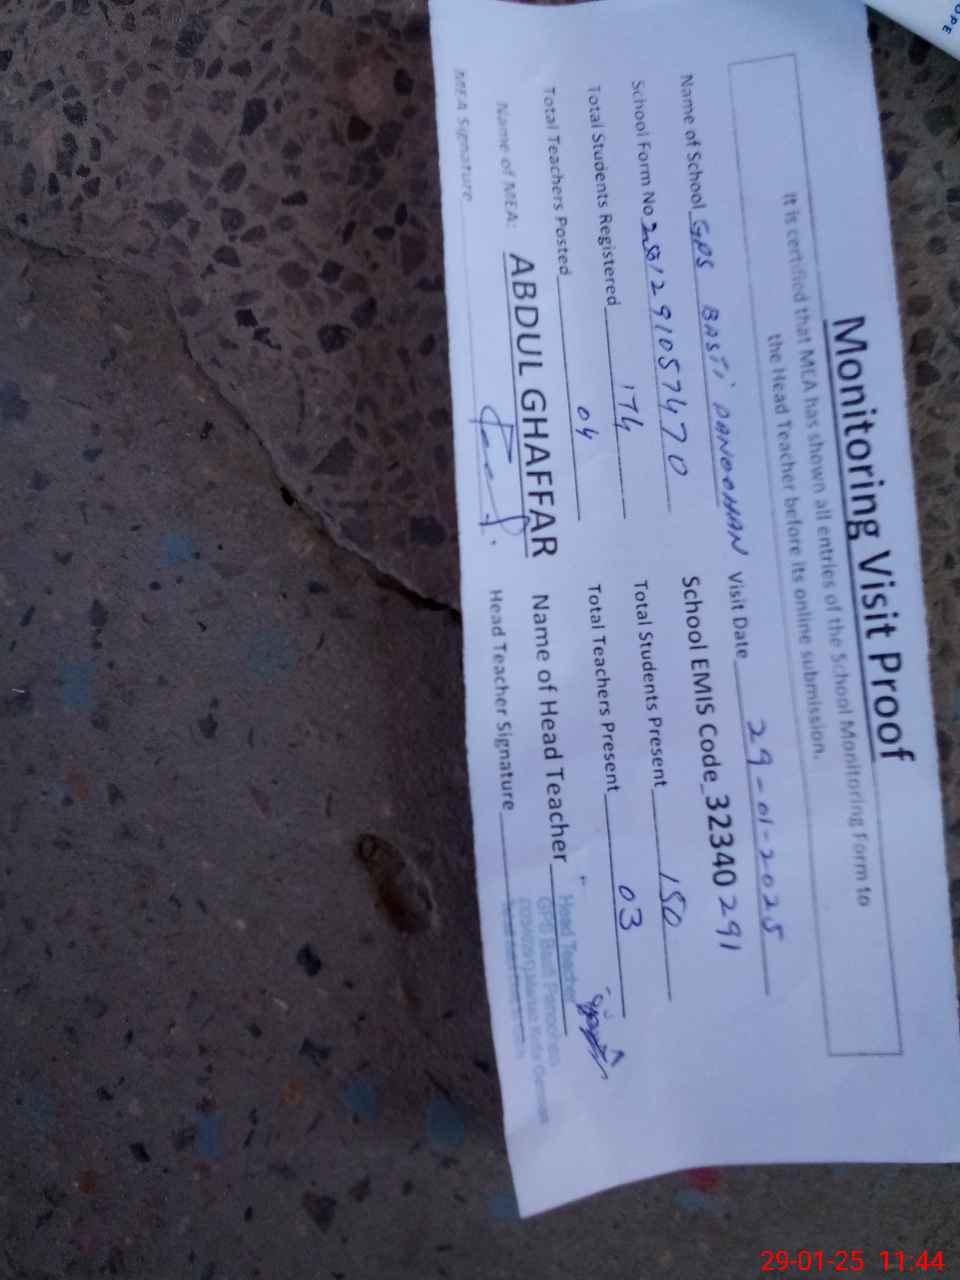 Monitoring Visit Proof
It is certified that MEA has shown all entries of the School Monitoring Form to
the Head Teacher before its online submission.
Name of School GPS BASTI PANOOHAN Visit Date 29-01-2025
School Form No 281291057470 School EMIS Code 32340291
Total Students Registered 174 Total Students Present 150
Total Teachers Posted 04 Total Teachers Present 03
Name of MEA: ABDUL GHAFFAR Name of Head Teacher
MEA Signature Head Teacher Signature
Head Teacher
GPS Basti Panoohan
29-01-25 11:44